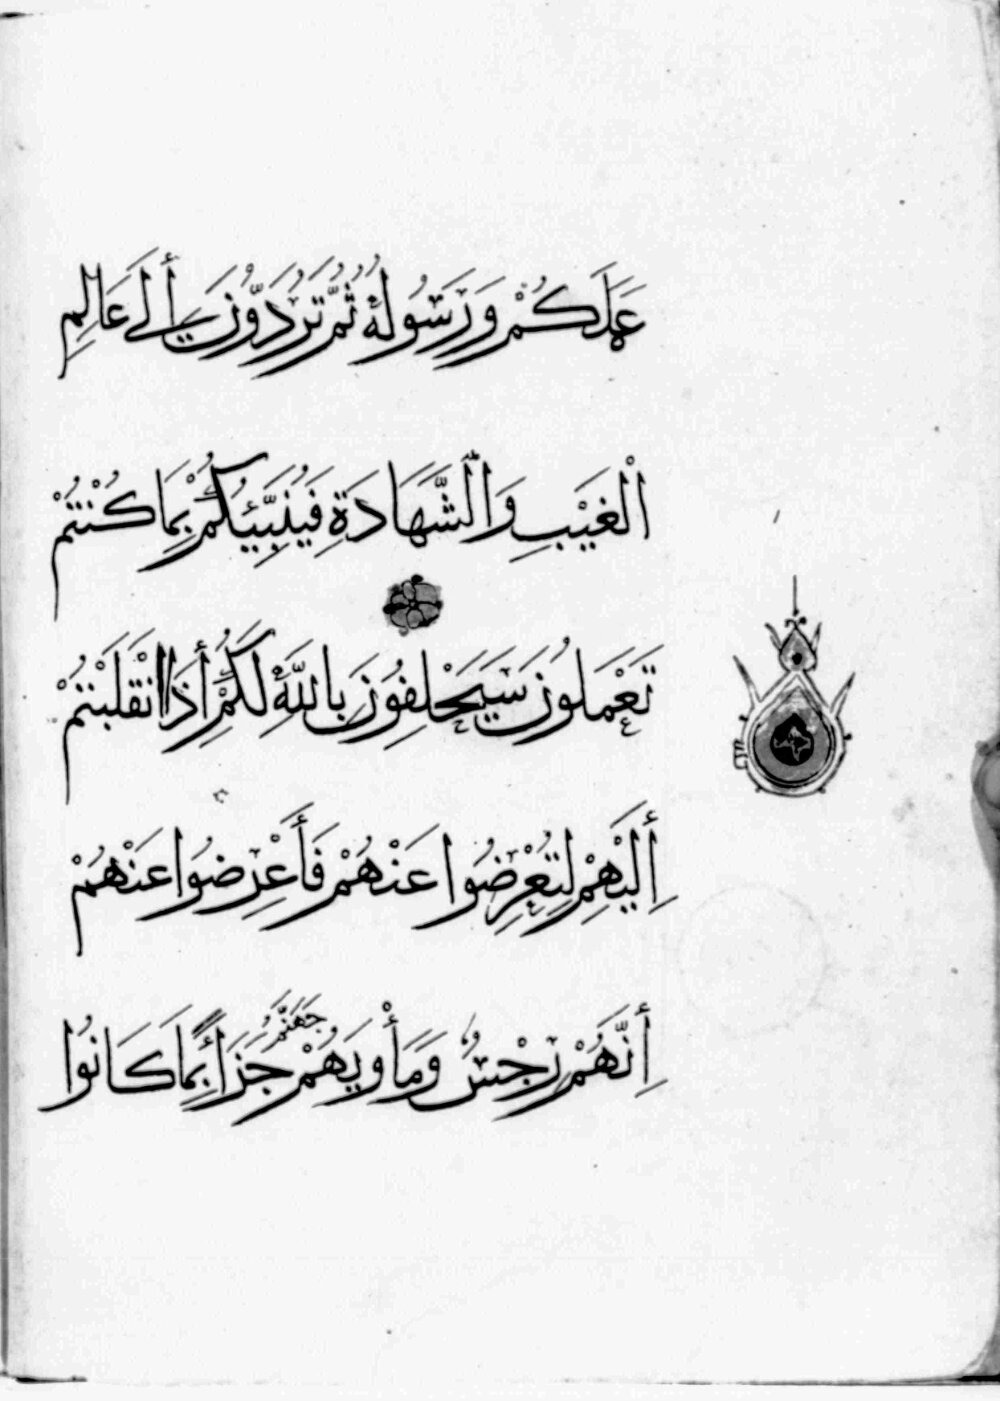 عَمَلَكُمْ وَرَسُولُهُ ثُمَّ تُرَدُّونَ إِلَىٰ عَالِمِ
الْغَيْبِ وَالشَّهَادَةِ فَيُنَبِّئُكُمْ بِمَا كُنْتُمْ
تَعْمَلُونَ سَيَحْلِفُونَ بِاللَّهِ لَكُمْ إِذَا انْقَلَبْتُمْ
إِلَيْهِمْ لِتُعْرِضُوا عَنْهُمْ فَأَعْرِضُوا عَنْهُمْ
إِنَّهُمْ رِجْسٌ وَمَأْوَيهُمْ جَهَنَّمُ جَزَاءً بِمَا كَانُوا